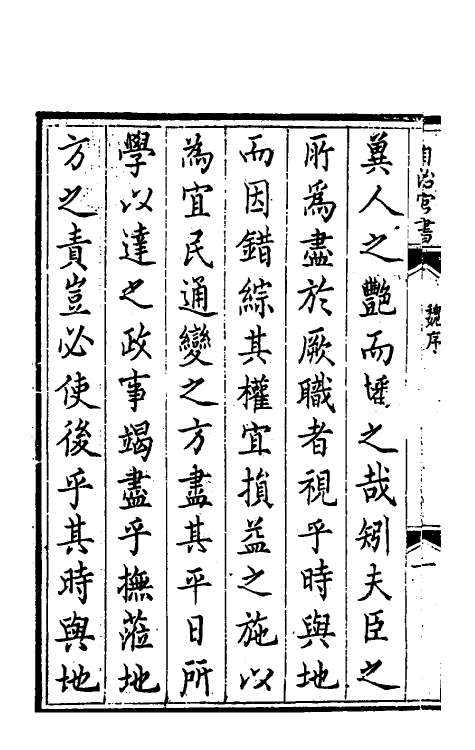 自治官書
魏序
一
冀人之艷而⿰之哉矧夫臣之
所爲盡於厥職者視乎時與地
而因錯綜其權宜損益之施以
為宜民通變之方盡其平日所
學以達之政事竭盡乎撫蒞地
方之責豈必使後乎其時與地